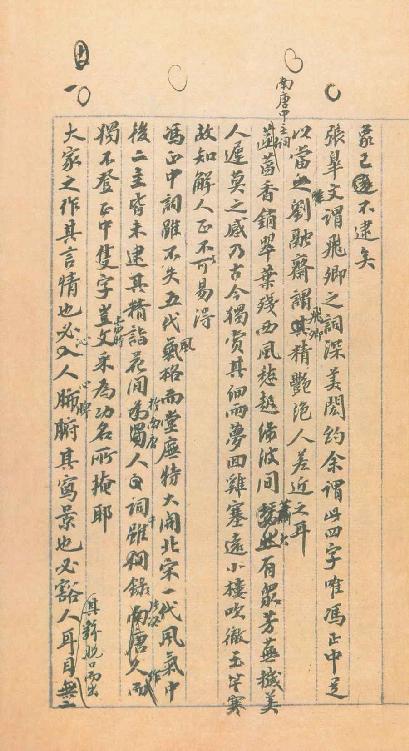 象已不逮矣
張皋文謂飛卿之詞深美閎約余謂此四字唯馮正中足
以當之劉融齋謂飛卿精艷絕人差近之耳
南唐中主詞
菡萏香銷翠葉殘西風愁起綠波間大有眾芳蕪穢美
人遲莫之感乃古今獨賞其細雨夢回雞塞遠小樓吹徹玉笙寒
故知解人正不可易得
馮正中詞雖不失五代風格而堂廡特大開北宋一代風氣中
後二主皆未逮其精詣花間於南唐人詞中雖錄而
獨不登正中隻字豈當時文采為功名所掩耶
大家之作其言情也必沁人心脾其寫景也必豁人耳目其辭脫口而出無